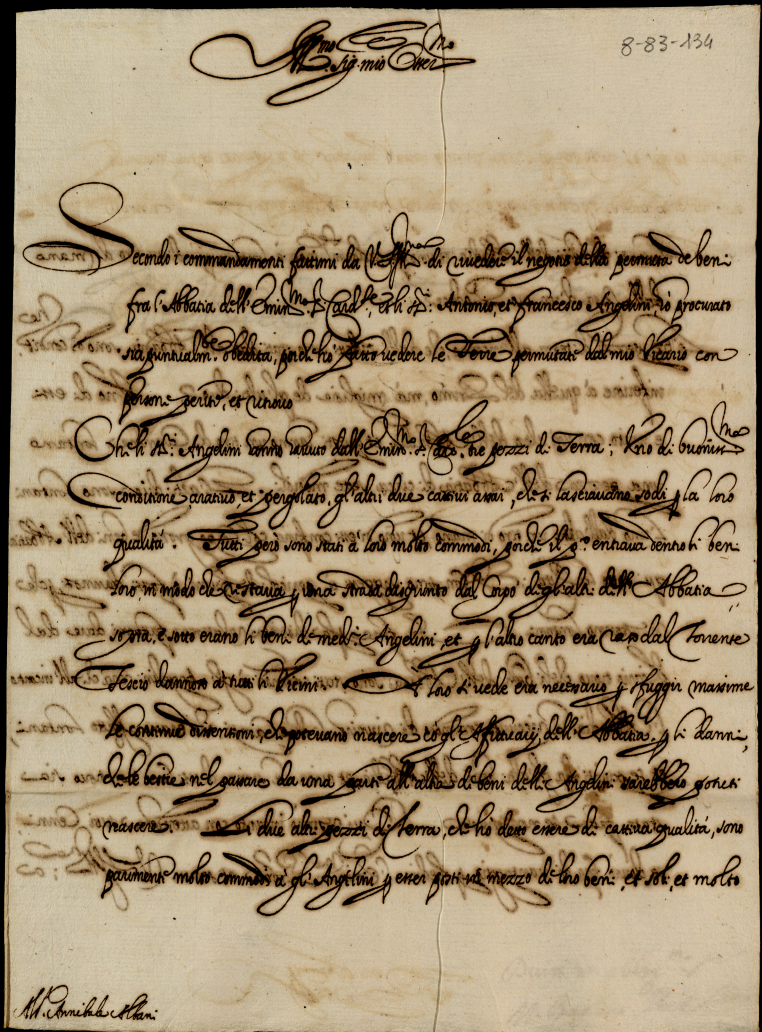 8-83-134
Ill.mo Sig. mio Osser.mo
Secondo i commandamenti fattimi da V.S. Ill.ma di rivedere il negotio della permuta de beni
fra l'Abbatia dell'Emin.mo S. Card.le, et li SS.ri Antonio, et Francesco Angelini, hò procurato
sia puntualm.te obedita, poiche hò fatto vedere le Terre permutate dal mio Vicario con
persone perite, et
Che li SS.ri Angelini hanno havuto dall'Emin.mo S. Card.le tre pezzi di Terra; Uno di buoniss.ma
conditione arativo, et pergolato, gl'altri due cattivi assai, che si lasciavano sodi p la loro
qualità. Tutti però sono stati à loro molto commodi, poiche il p.o entrava dentro li beni
loro, in modo che restava p una strada disgiunto dal Corpo degl'altri dell'Abbatia
sopra, e sotto erano li beni de med.i Angelini, et p l'altro canto era roso dal Torrente
Tescio dannoso à tutti li Vicini. A loro si vede era necessario p sfuggir massime
le continue dissentioni, che potevano nascere cò gl'Affittuarij dell'Abbatia p li danni,
che le bestie nel passare da una parte all'altra di beni delli Angelini sarebbero potuti
nascere. Li due altri pezzi di Terra, che hò detto essere di cattiva qualità, sono
parimente molto commodi à gl'Angelini p esser posti in mezzo de loro beni, et soli, et molto
Annibale Albani